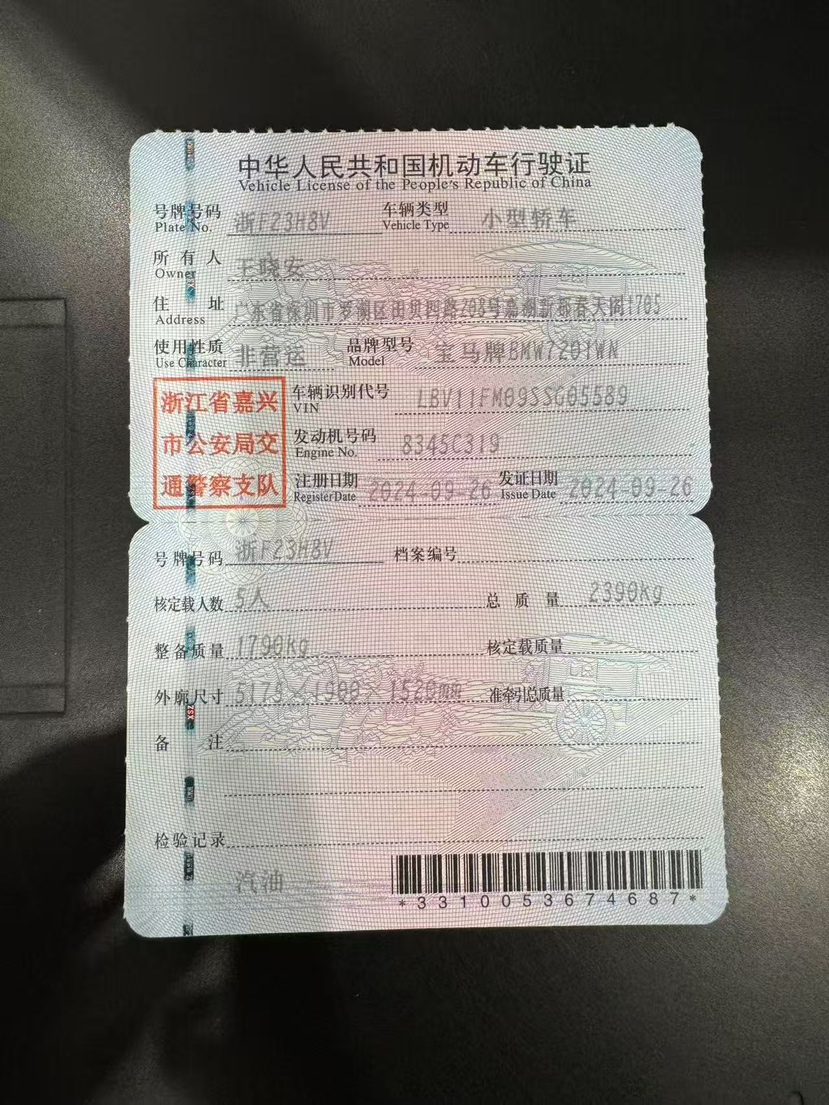 中华人民共和国机动车行驶证
Vehicle License of the People's Republic of China
号牌号码 浙F23H8V 车辆类型 小型轿车
Plate No. Vehicle Type
所有人 王晓安
Owner
住址 广东省深圳市罗湖区田贝四路208号嘉湖新都春天阁1705
Address
使用性质 非营运 品牌型号 宝马牌BMW7201WN
Use Character Model
浙江省嘉兴
市公安局交
通警察支队
车辆识别代号 LBV11FM09SSG05589
VIN
发动机号码 8345C319
Engine No.
注册日期 2024-09-26 发证日期 2024-09-26
Register Date Issue Date
号牌号码 浙F23H8V 档案编号
核定载人数 5人 总质量 2390kg
整备质量 1790kg 核定载质量
外廓尺寸 5175×1900×1520mm 准牵引总质量
备注
检验记录
汽油
*3310053674687*